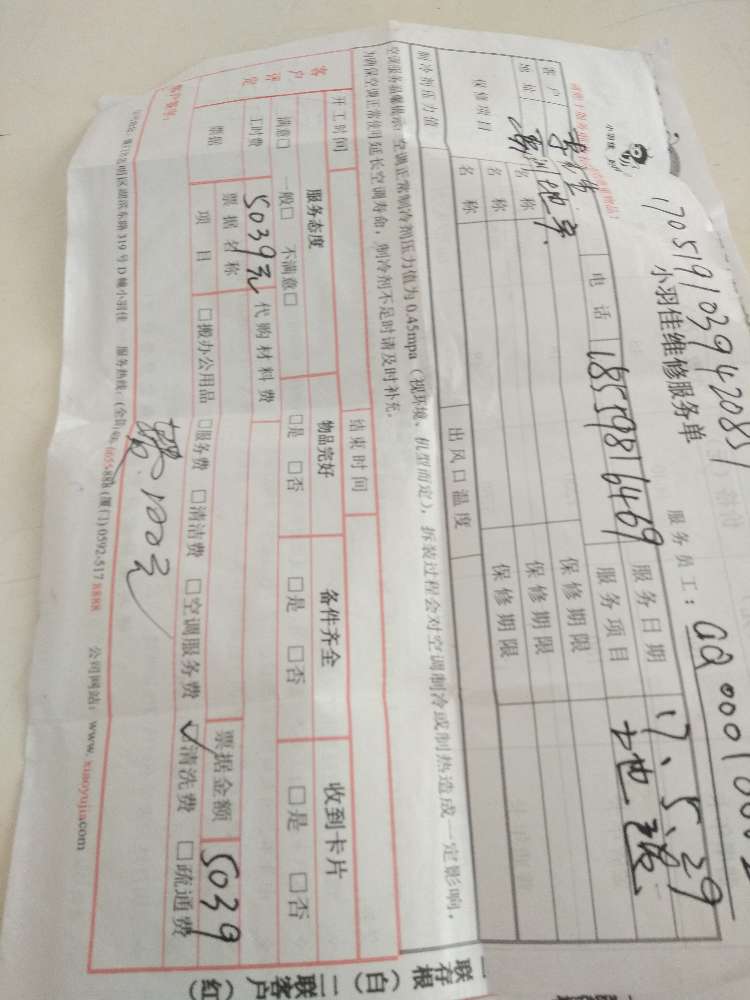 170519103942085
小羽佳维修服务单
服务员工：
客户
电话
18559816469
服务日期
17.5.29
地址
服务项目
地毯
保修项目
名称
保修期限
名称
保修期限
名称
保修期限
制冷剂压力值
出风口温度
空调正常制冷剂压力值为0.45mpa（视环境、机型而定），拆装过程会对空调制冷或制热造成一定影响，
为确保空调正常使用延长空调寿命，制冷剂不足时请及时补充。
开工时间
结束时间
客户评定
服务态度
物品完好
备件齐全
收到卡片
满意□ 一般□ 不满意□
□是 □否
□是 □否
□是 □否
工时费
5039元
代购材料费
票据
票据名称
票据金额
5039
项目
□搬办公用品 □服务费 □清洁费 □空调服务费 ☑清洗费 □疏通费
客户签名：
100元
区湖滨东路319号D幢小羽佳
服务热线：
(厦门)0592-5178888
公司网站：www.xiaoyujia.com
一存根（白）二客户联（红）